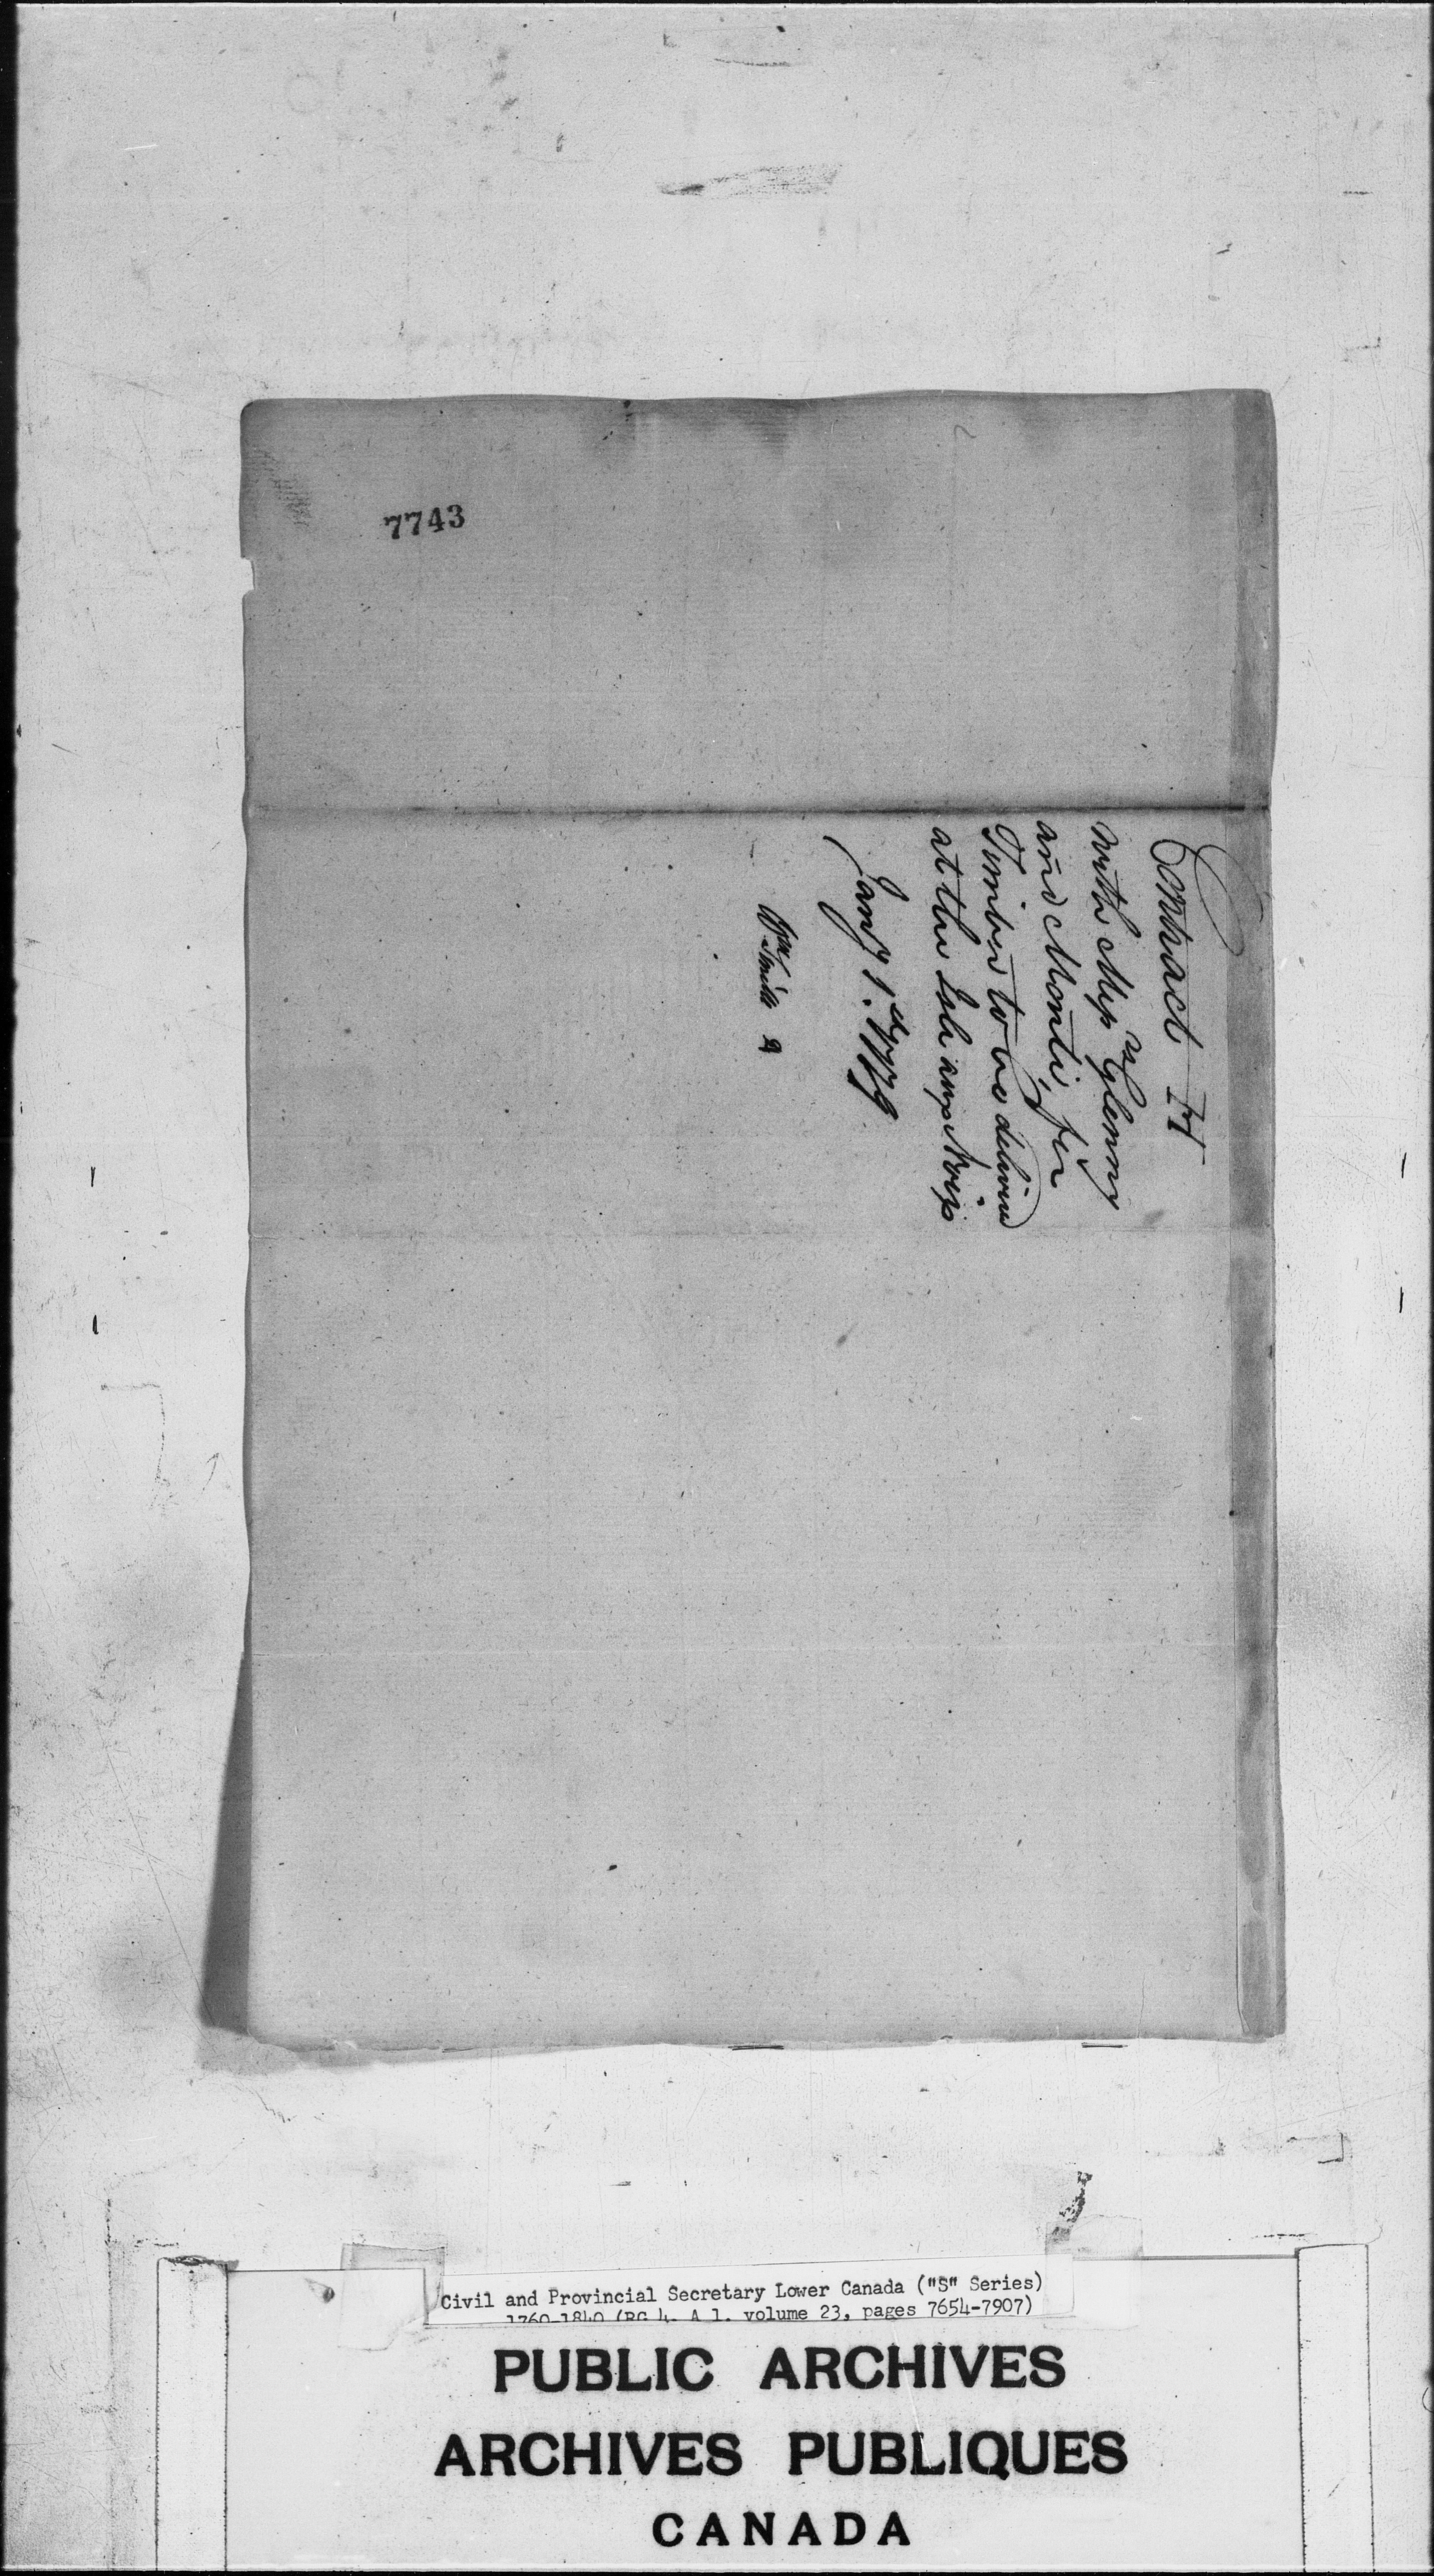 7743
Contract
with Mess.rs Glenny
and Monti, for
Timber to be deliver'd
at the Isle aux Noix
Jan.y 1.st 1779
Civil and Provincial Secretary Lower Canada ("S" Series)
1760-1840 (RG 4, A 1, volume 23, pages 7654-7907)
PUBLIC ARCHIVES
ARCHIVES PUBLIQUES
CANADA